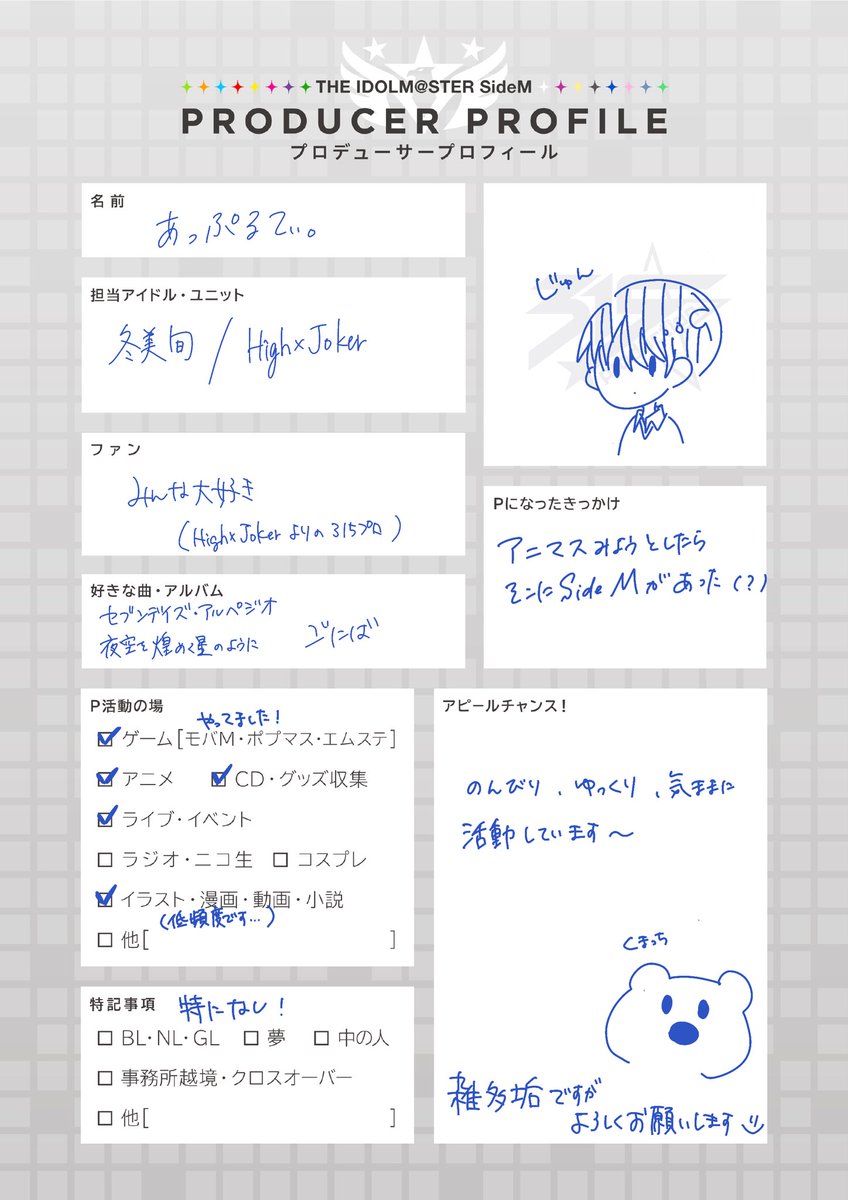 THE IDOLM@STER SideM
PRODUCER PROFILE
プロデューサープロフィール
名前
あっぷるてぃ。
担当アイドル・ユニット
冬美旬 / High×Joker
ファン
みんな大好き
(High×Jokerよりの315プロ)
好きな曲・アルバム
セブンデイズ・アルペジオ
夜空を煌めく星のように
ごにば
じゅん
Pになったきっかけ
アニマスみようとしたら
そこにSideMがあった(?)
P活動の場
やってました!
ゲーム[モバM・ポプマス・エムステ]
アニメ CD・グッズ収集
ライブ・イベント
ラジオ・ニコ生 コスプレ
イラスト・漫画・動画・小説
(低頻度です…)
他[ ]
特記事項 特になし!
BL・NL・GL 夢 中の人
事務所越境・クロスオーバー
他[ ]
アピールチャンス!
のんびり、ゆっくり、気ままに
活動しています〜
くまっち
雑多垢ですが
よろしくお願いします